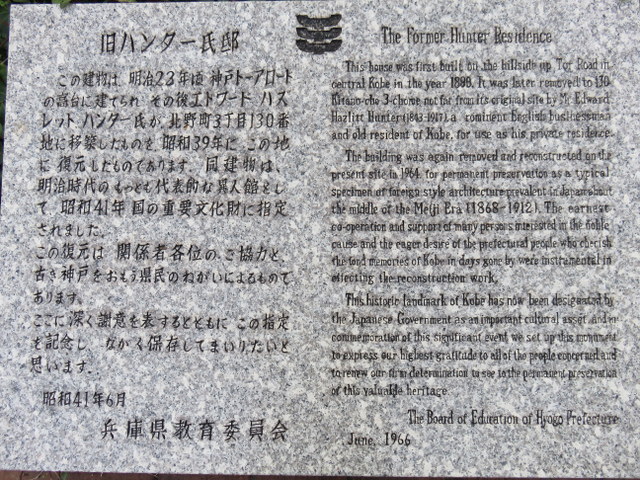 旧ハンター氏邸
この建物は、明治23年頃 神戸トーアロード
の高台に建てられ その後エドワード ハズ
レット ハンター氏が 北野町3丁目130番
地に移築したものを 昭和39年に この地
に 復元したものであります 同建物は、
明治時代の もっとも代表的な異人館とし
て、昭和41年 国の重要文化財に指定
されました。
この復元は 関係者各位の ご協力と、
古き神戸を おもう県民のねがいによるもので
あります。
ここに深く謝意を表するとともに この指定
を記念し ながく保存してまいりたいと
思います。
昭和41年6月
兵庫県教育委員会
The Former Hunter Residence
This house was first built on the hillside up Tor Road in
central Kobe in the year 1889. It was later removed to 130
Kitano-cho 3-chome not far from its original site by Mr Edward
Hazlitt Hunter (1843-1917), a prominent English businessman
and old resident of Kobe, for use as his private residence.
The building was again removed and reconstructed on the
present site in 1964, for permanent preservation as a typical
specimen of foreign style architecture prevalent in Japan about
the middle of the Meiji Era (1868-1912). The earnest
co-operation and support of many persons interested in the noble
cause and the eager desire of the prefectural people who cherish
the fond memories of Kobe in days gone by were instrumental in
effecting the reconstruction work.
This historic landmark of Kobe has now been designated by
the Japanese Government as an important cultural asset, and in
commemoration of this significant event we set up this monument
to express our highest gratitude to all of the people concerned and
to renew our firm determination to see to the permanent preservation
of this valuable heritage.
The Board of Education of Hyogo Prefecture
June, 1966